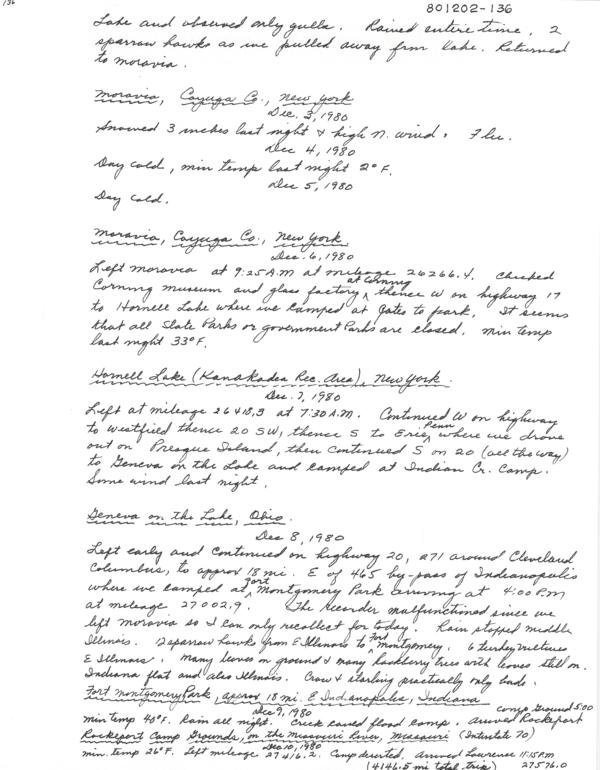 136
801202-136
Lake and observed only gulls. Rained entire time. 2
sparrow hawks as we pulled away from lake. Returned
to Moravia.
Moravia, Cayuga Co., New York
Dec. 3, 1980
Snowed 3 inches last night & high N. wind. Flu.
Dec 4, 1980
Day cold, min temp last night 2°F.
Dec 5, 1980
Day cold.
Moravia, Cayuga Co., New York
Dec. 6, 1980
Left Moravia at 9:25 A.M at mileage 26266.4. Checked
Corning museum and glass factory at Corning thence W on highway 17
to Hornell Lake where we camped at gates to park. It seems
that all State Parks or government Parks are closed. Min temp
last night 33°F.
Hornell Lake (Kanakadea Rec. Area), New York.
Dec. 7, 1980
Left at mileage 26418.3 at 7:30 A.M. Continued W on highway
to Westfield thence 20 SW, thence S to Erie, Penn where we drove
out on Presque Island, then continued S on 20 (all the way)
to Geneva on the Lake and camped at Indian Cr. Camp.
Some wind last night.
Geneva on the Lake, Ohio.
Dec 8, 1980
Left early and continued on highway 20, 271 around Cleveland
Columbus, to approx 18 mi. E of 465 by-pass of Indianapolis
where we camped at Fort Montgomery Park arriving at 4:00 P.M
at mileage 27002.9. The recorder malfunctioned since we
left Moravia so I can only recollect for today. Rain stopped middle
Illinois. 2 sparrow hawks from E Illinois to Fort Montgomery. 6 turkey vultures
E Illinois. Many leaves on ground & many hackberry trees with leaves still on.
Indiana flat and also Illinois. Crow & starling practically only birds.
Fort Montgomery Park, approx 18 mi. E Indianapolis, Indiana
Dec 9, 1980 camp ground 5:00
Min temp 40°F. Rain all night. Creek caused flood camp. Arrived Rockport
Rockport Camp Grounds, on the Missouri River, Missouri (Interstate 70)
Dec 10, 1980
min. temp 26°F. Left mileage 27416.2. Camp deserted. Arrived Lawrence 11:15 P.M
(4146.5 mi total trip) 27576.0